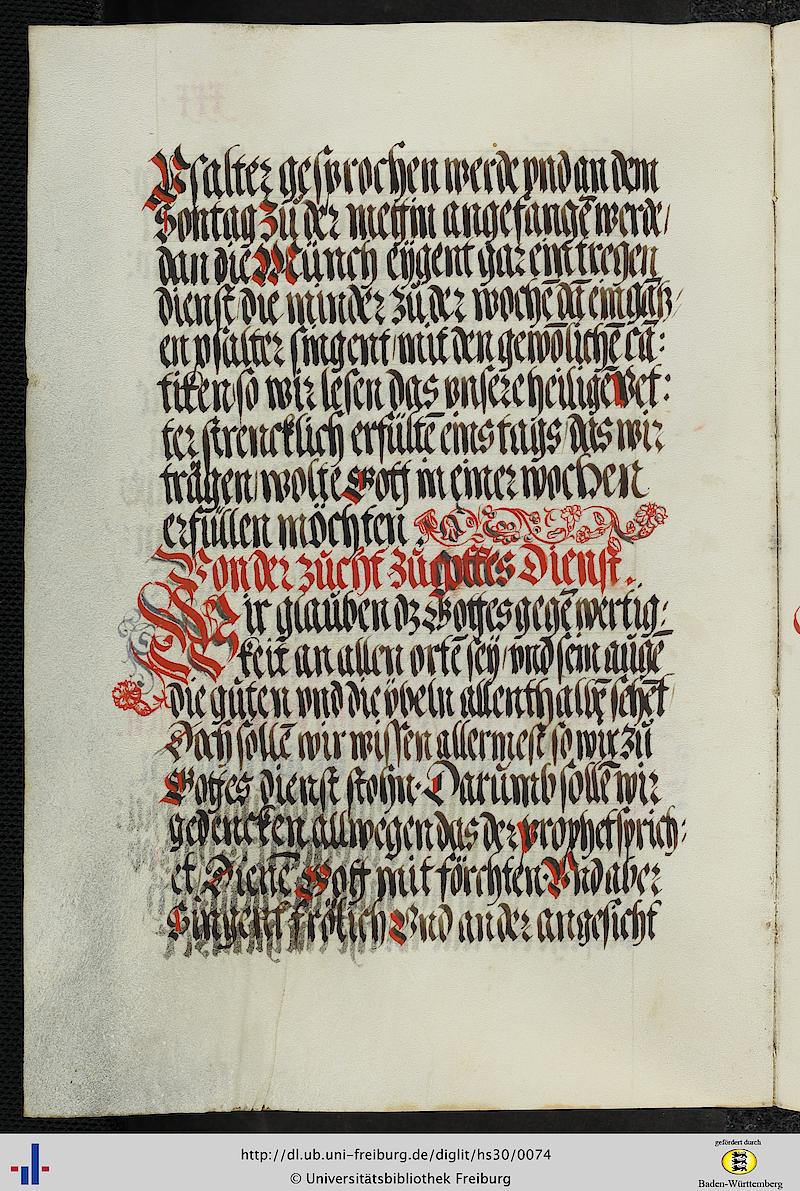 Psalter gesprochen werde vnd an dem
Sontag Zů der mettin angefangē werde/
dan die Münch eÿgent gar ein tregen
dienst die minder zů der wochē dā ein gātz/
en psalter singent/ mit den gewōlichē cā:
tiken/ so wir lesen das vnsere heiligē Vet:
ter strencklich erfültē eins tags/ das wir
trägen/ wolte Gott in einer wochen
erfüllen möchten.
Von der zůcht zů gottes Dienst.
Wir glauben dz Gottes gegēwertig:
keit an allen ortē seÿ/ vnd sein augē
die gůten vnd die übeln allenthalbē sehēt/
Doch sollē wir wissen allermest so wir zů
Gottes dienst stohn. Darumb sollē wir
gedencken allwegen das der prophet sprich:
et, Dienē Gott mit förchten. Vnd aber
Singent frölich Vnd an der angesicht
http://dl.ub.uni-freiburg.de/diglit/hs30/0074
© Universitätsbibliothek Freiburg
gefördert durch
Baden-Württemberg